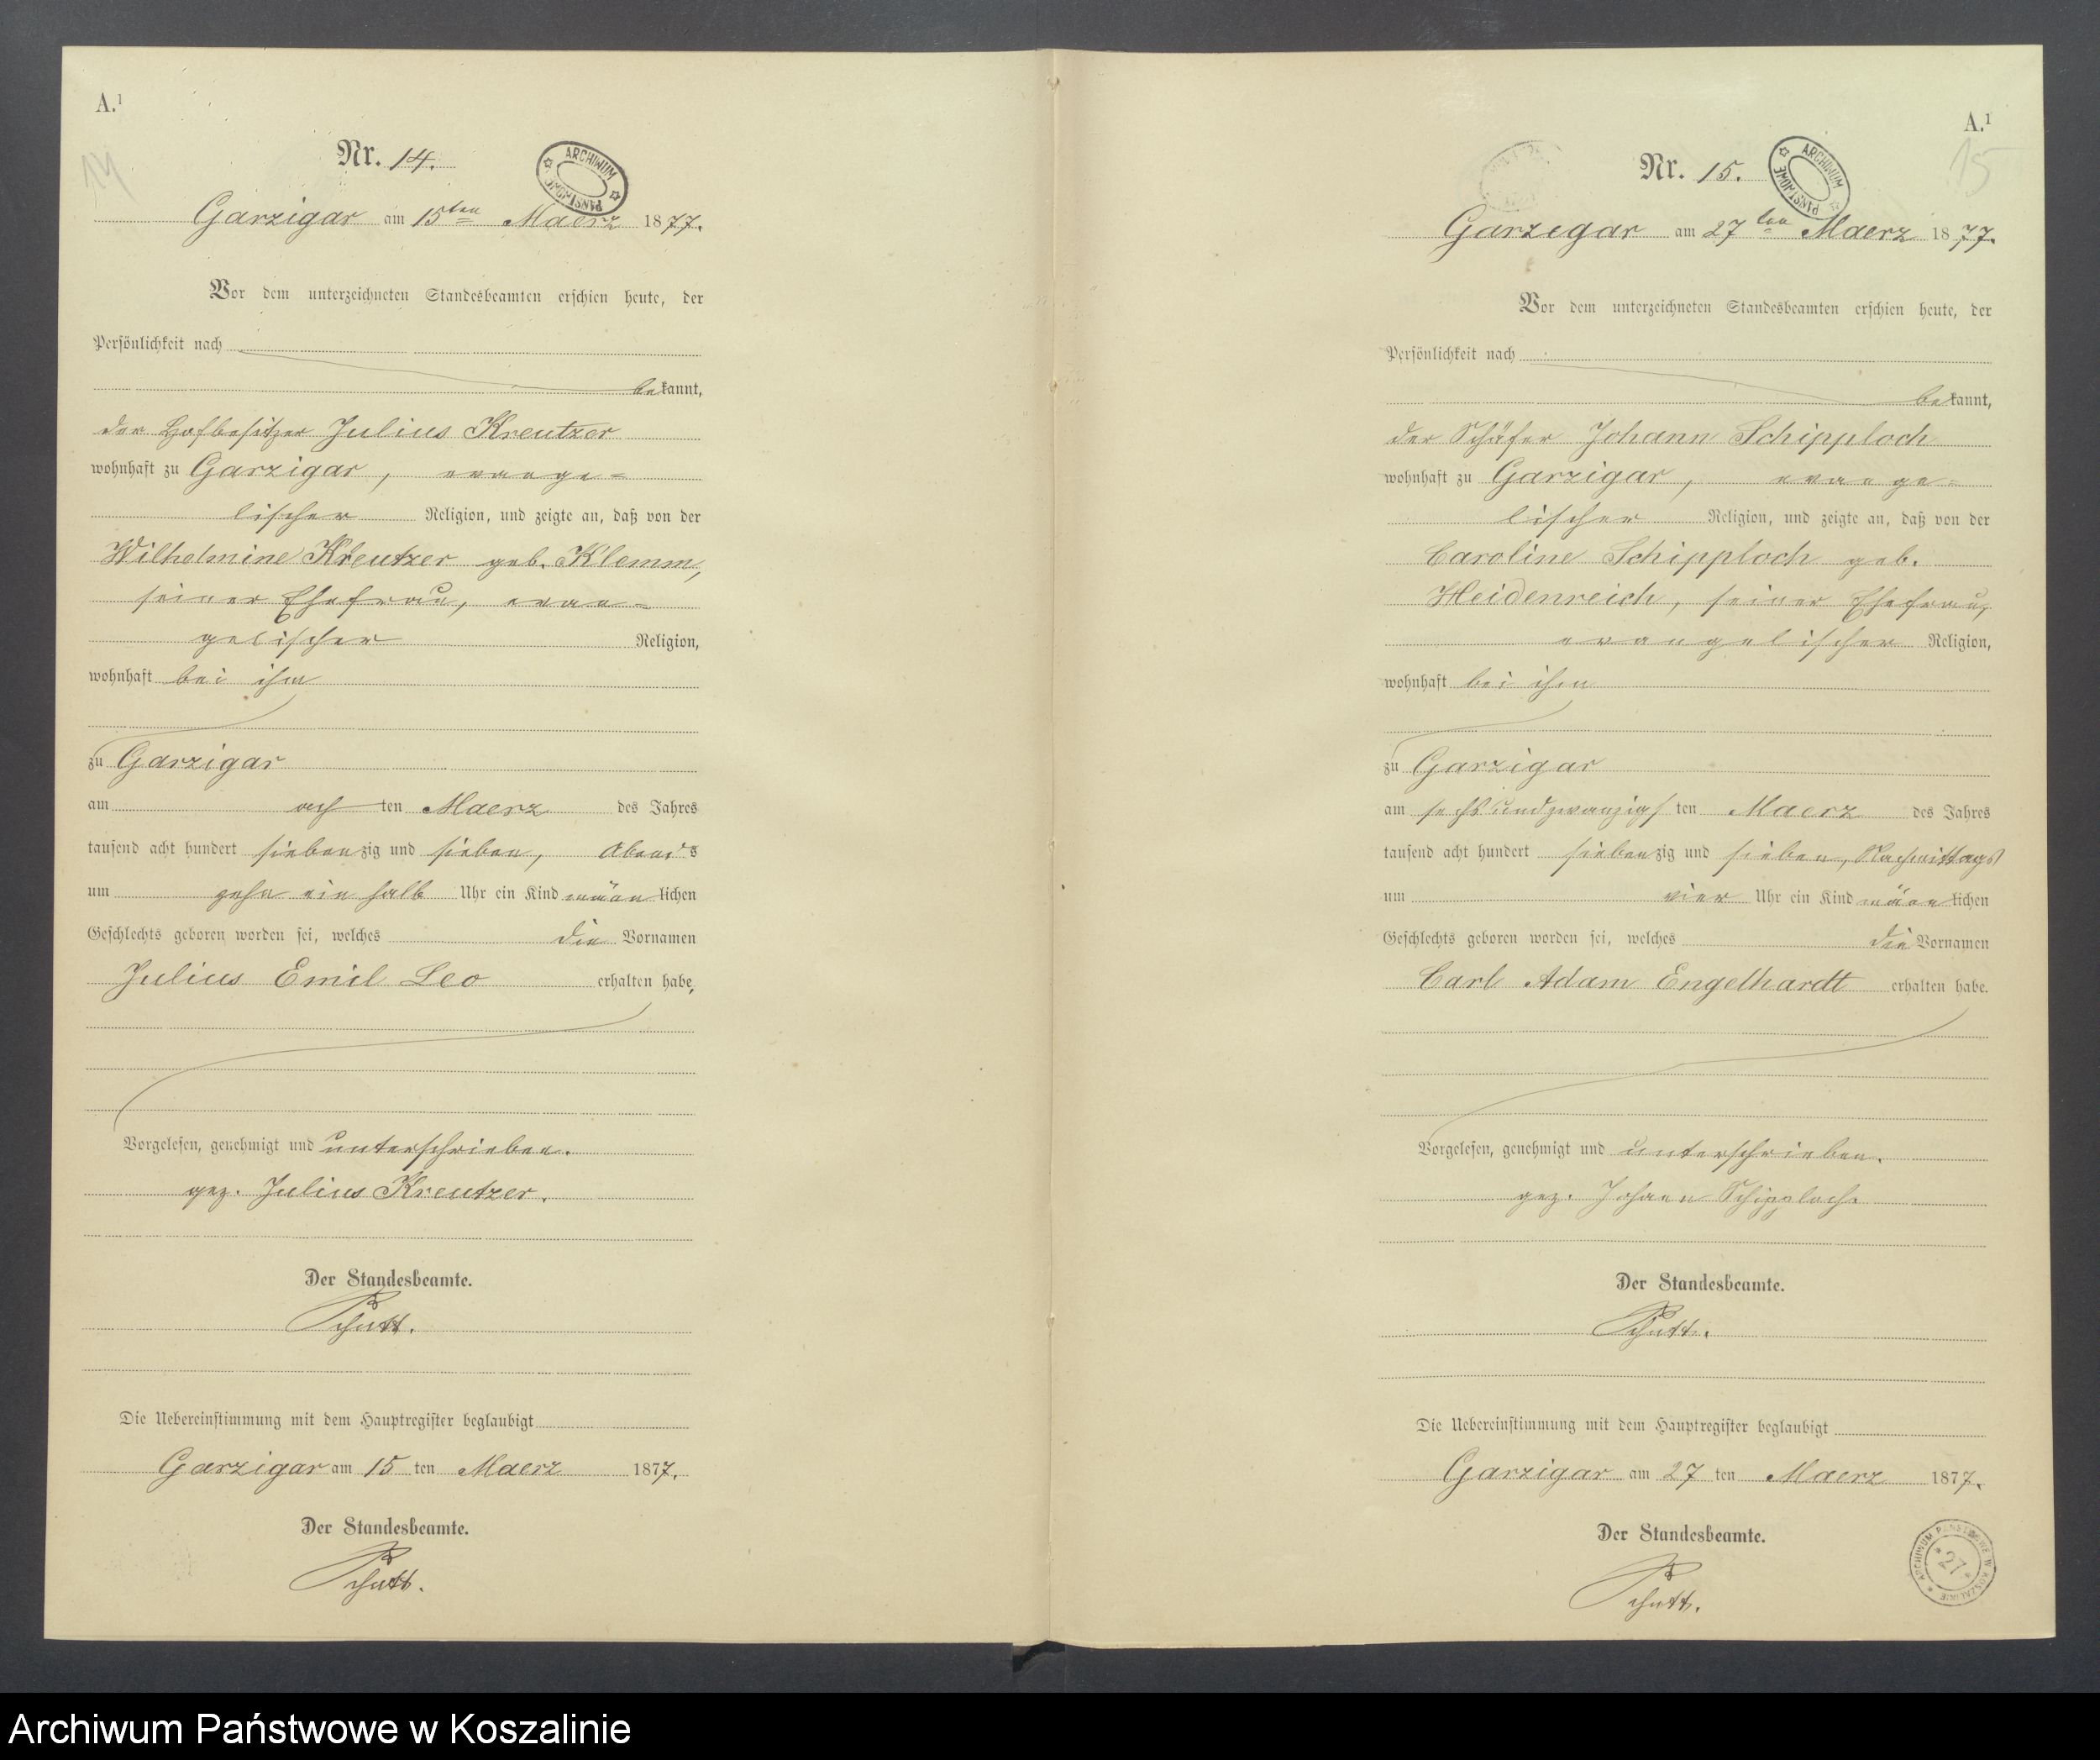 A.¹
14
Nr. 14.
ARCHIWUM PAŃSTWOWE
Garzigar am 15ten Maerz 1877.
Vor dem unterzeichneten Standesbeamten erschien heute, der
Persönlichkeit nach
bekannt,
der Hofbesitzer Julius Kreutzer
wohnhaft zu Garzigar, evange=
lischer Religion, und zeigte an, daß von der
Wilhelmine Kreutzer geb. Klemm,
seiner Ehefrau, evan=
gelischer Religion,
wohnhaft bei ihm
zu Garzigar
am achten Maerz des Jahres
tausend acht hundert siebenzig und sieben, Abends
um zehn ein halb Uhr ein Kind männlichen
Geschlechts geboren worden sei, welches die Vornamen
Julius Emil Leo erhalten habe.
Vorgelesen, genehmigt und unterschrieben.
gez. Julius Kreutzer.
Der Standesbeamte.
Die Uebereinstimmung mit dem Hauptregister beglaubigt
Garzigar am 15 ten Maerz 1877.
Der Standesbeamte.
A.¹
15
Nr. 15.
ARCHIWUM PAŃSTWOWE
Garzegar am 27ten Maerz 1877.
Vor dem unterzeichneten Standesbeamten erschien heute, der
Persönlichkeit nach
bekannt,
der Schäfer Johann Schipploch
wohnhaft zu Garzigar, evange=
lischer Religion, und zeigte an, daß von der
Caroline Schipploch geb.
Heidenreich, seiner Ehefrau,
evangelischer Religion,
wohnhaft bei ihm
zu Garzigar
am sechsundzwanzigsten Maerz des Jahres
tausend acht hundert siebenzig und sieben, Nachmittags
um vier Uhr ein Kind männlichen
Geschlechts geboren worden sei, welches die Vornamen
Carl Adam Engelhardt erhalten habe.
Vorgelesen, genehmigt und unterschrieben.
gez. Johann Schipploch.
Der Standesbeamte.
Die Uebereinstimmung mit dem Hauptregister beglaubigt
Garzigar am 27 ten Maerz 1877.
Der Standesbeamte.
ARCHIWUM PAŃSTWOWE W KOSZALINIE
27
Archiwum Państwowe w Koszalinie